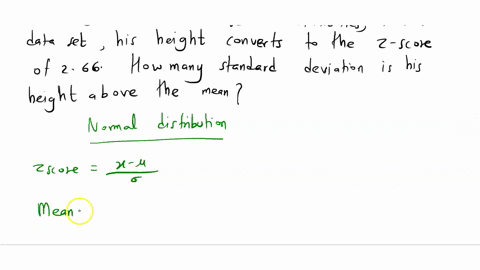 data set, his height converts to the z-score
of 2.66. How many standard deviation is his
height above the mean?
Normal distribution
z score = x-μ / σ
Mean